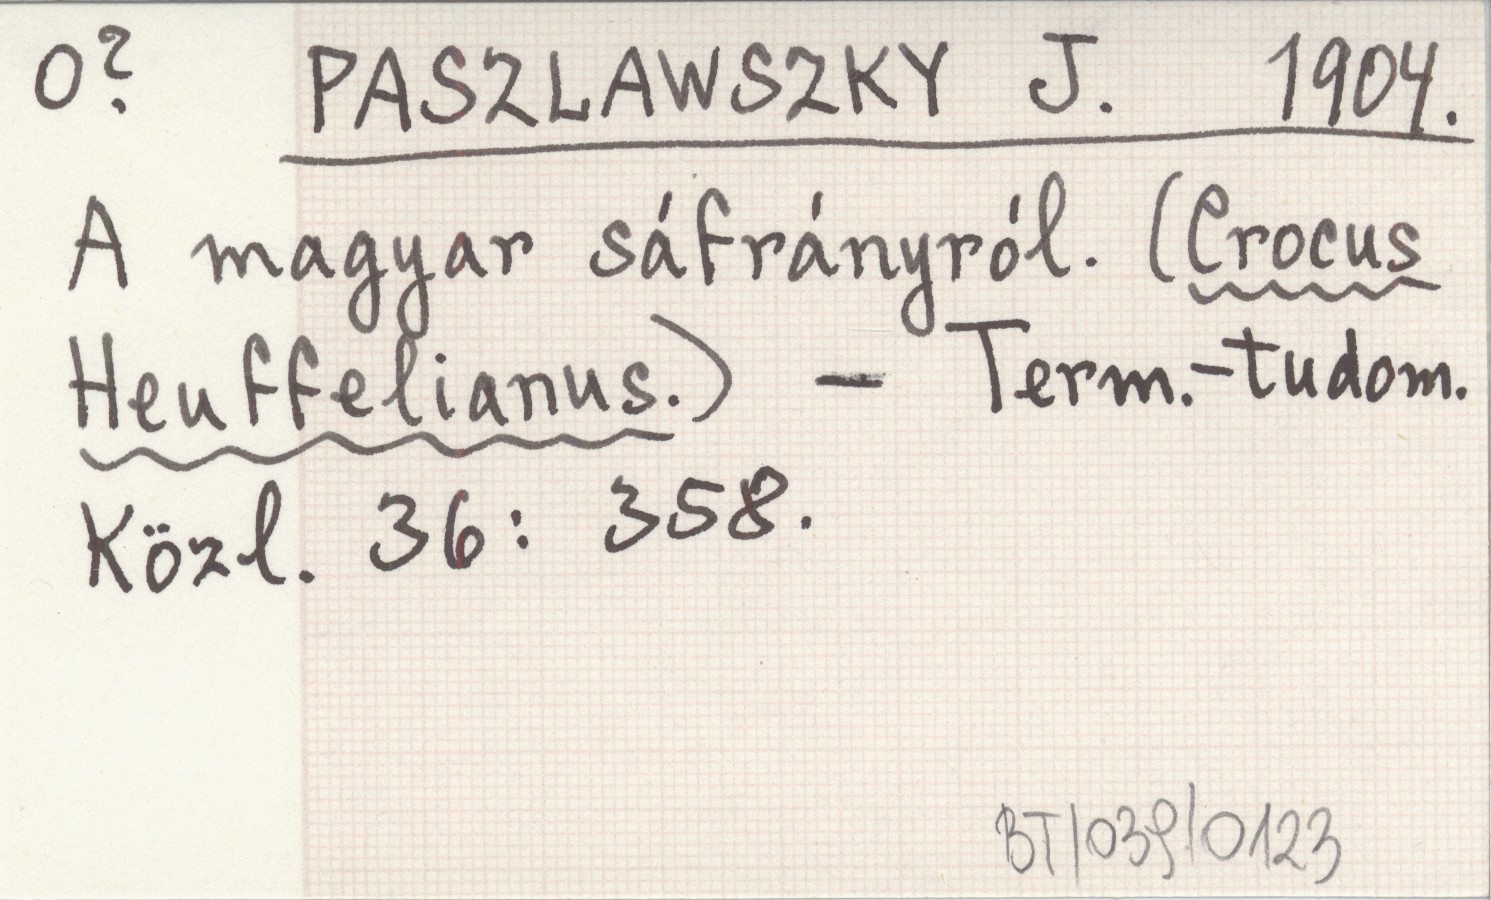 O? PASZLAWSZKY J. 1904.
A magyar sáfrányról. (Crocus
Heuffelianus.) – Term.-tudom.
Közl. 36: 358.
BT/039/0123